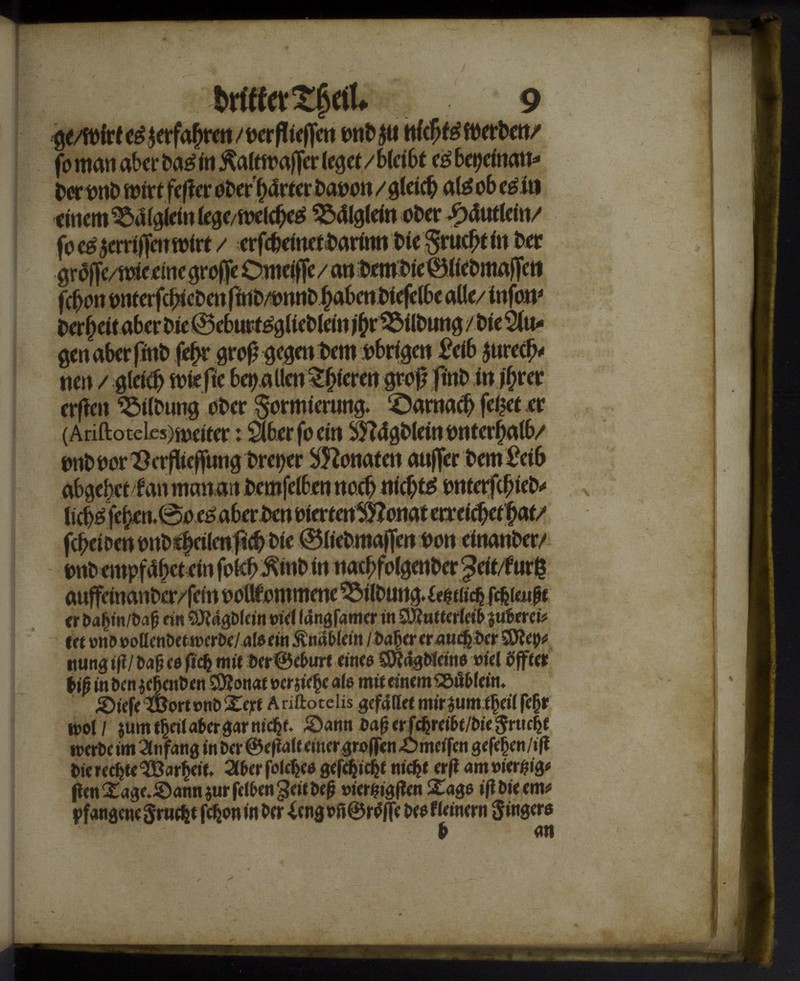 dritter Theil. 9
ge/wirt es zerfahren/verfliessen vnd zu nichts werden/
so man aber das in Kaltwasser leget/bleibt es beyeinan-
der vnd wirt fester oder härter davon/gleich als ob es in
einem Bälglein lege/welches Bälglein oder Häutlein/
so es zerrissen wirt / erscheinet darinn die Frucht in der
grösse/wie eine grosse Omeisse/an dem die Gliedmassen
schon vnterschieden sind/vnnd haben dieselbe alle/ inson-
derheit aber die Geburtsgliedlein jhr Bildung/die Au-
gen aber sind sehr groß gegen dem vbrigen Leib zurech-
nen / gleich wie sie bey allen Thieren groß sind in jhrer
ersten Bildung oder Formierung. Darnach setzet er
(Aristoteles)weiter: Aber so ein Mägdlein vnterhalb/
vnd vor Verfliessung dreyer Monaten ausser dem Leib
abgehet/kan man an demselben noch nichts vnterschied-
lichs sehen. So es aber den vierten Monat erreichet hat/
scheiden vnd theilen sich die Gliedmassen von einander/
vnd empfähet ein solch Kind in nachfolgender Zeit/kurtz
auffeinander/sein vollkommene Bildung. Letztlich schleußt
er dahin/daß ein Mägdlein viel langsamer in Mutterleib zuberei-
tet vnd vollendet werde/ als ein Knäblein / daher er auch der Mey-
nung ist/ daß es sich mit der Geburt eines Mägdleins viel öffter
biß in den zehenden Monat verziehe als mit einem Büblein.
Diese Wort vnd Text Aristotelis gefället mir zum theil sehr
wol / zum theil aber gar nicht. Dann daß er schreibt/die Frucht
werde im Anfang in der Gestalt einer grossen Omeisen gesehen/ist
die rechte Warheit. Aber solches geschicht nicht erst am viertzig-
sten Tage. Dann zur selben Zeit deß viertzigsten Tags ist die em-
pfangene Frucht schon in der Leng vn̄ Grösse des kleinern Fingers
b an